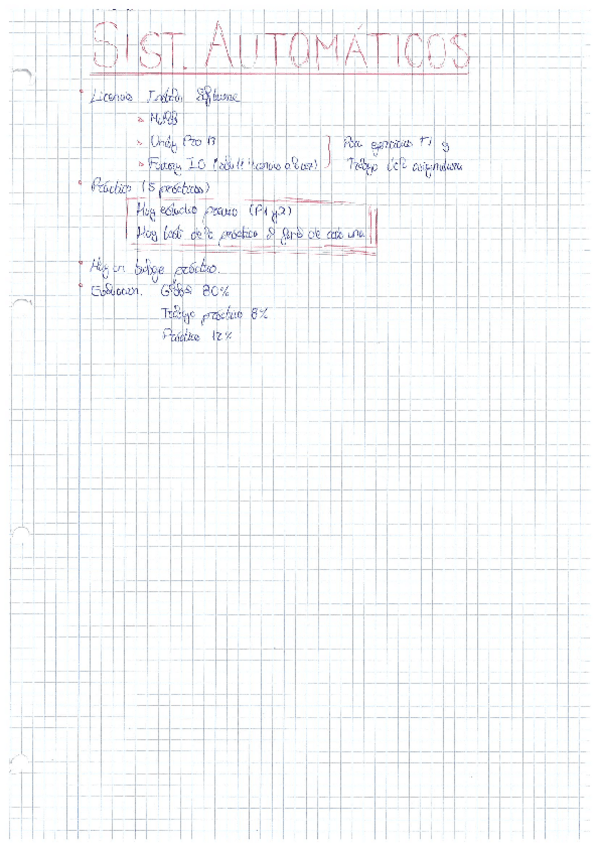 SIST. AUTOMÁTICOS
Licencias Software
Unity Pro
Factory IO
Para ejercicios T1 y
Trabajo de la asignatura
Prácticas (5 prácticas)
Hay estudio previo (P1 y 2)
Hay test de la práctica al final de cada una
Hay un trabajo práctico.
Evaluación. 80%
Trabajo práctico 8%
Prácticas 12%